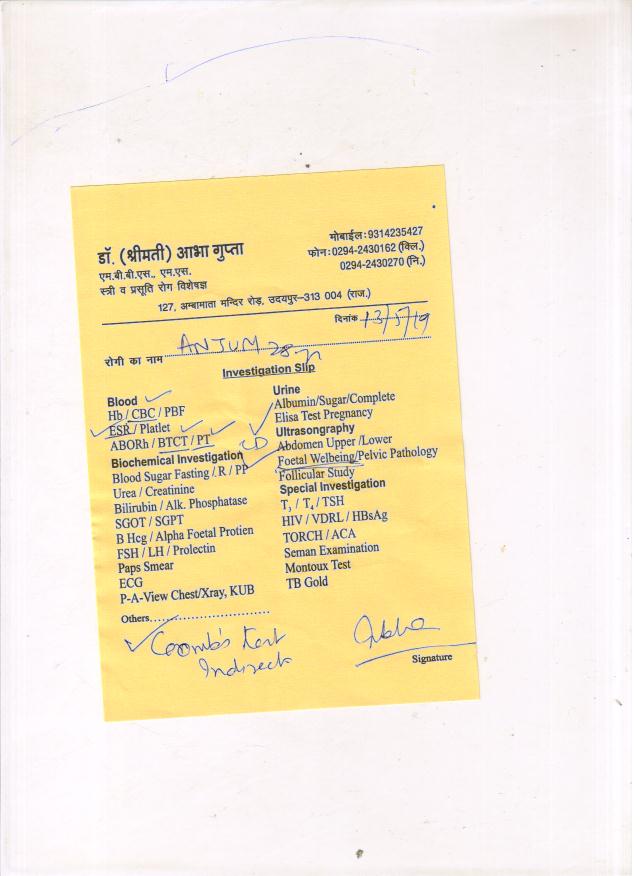 डॉ. (श्रीमती) आभा गुप्ता
एम.बी.बी.एस., एम.एस.
स्त्री व प्रसूति रोग विशेषज्ञ
मोबाईल:9314235427
फोन:0294-2430162 (क्लि.)
0294-2430270 (नि.)
127, अम्बामाता मन्दिर रोड़, उदयपुर–313 004 (राज.)
दिनांक 13/5/19
रोगी का नाम ANJUM 28 yr
Investigation Slip
Blood
Hb / CBC / PBF
ESR / Platlet
ABORh / BTCT / PT
Biochemical Investigation
Blood Sugar Fasting / R / PP
Urea / Creatinine
Bilirubin / Alk. Phosphatase
SGOT / SGPT
B Hcg / Alpha Foetal Protien
FSH / LH / Prolectin
Paps Smear
ECG
P-A-View Chest/Xray, KUB
Urine
Albumin/Sugar/Complete
Elisa Test Pregnancy
Ultrasongraphy
Abdomen Upper /Lower
Foetal Welbeing/Pelvic Pathology
Follicular Study
Special Investigation
T₃ / T₄ / TSH
HIV / VDRL / HBsAg
TORCH / ACA
Seman Examination
Montoux Test
TB Gold
Others..............................
Coomb's test
Indirect
Signature